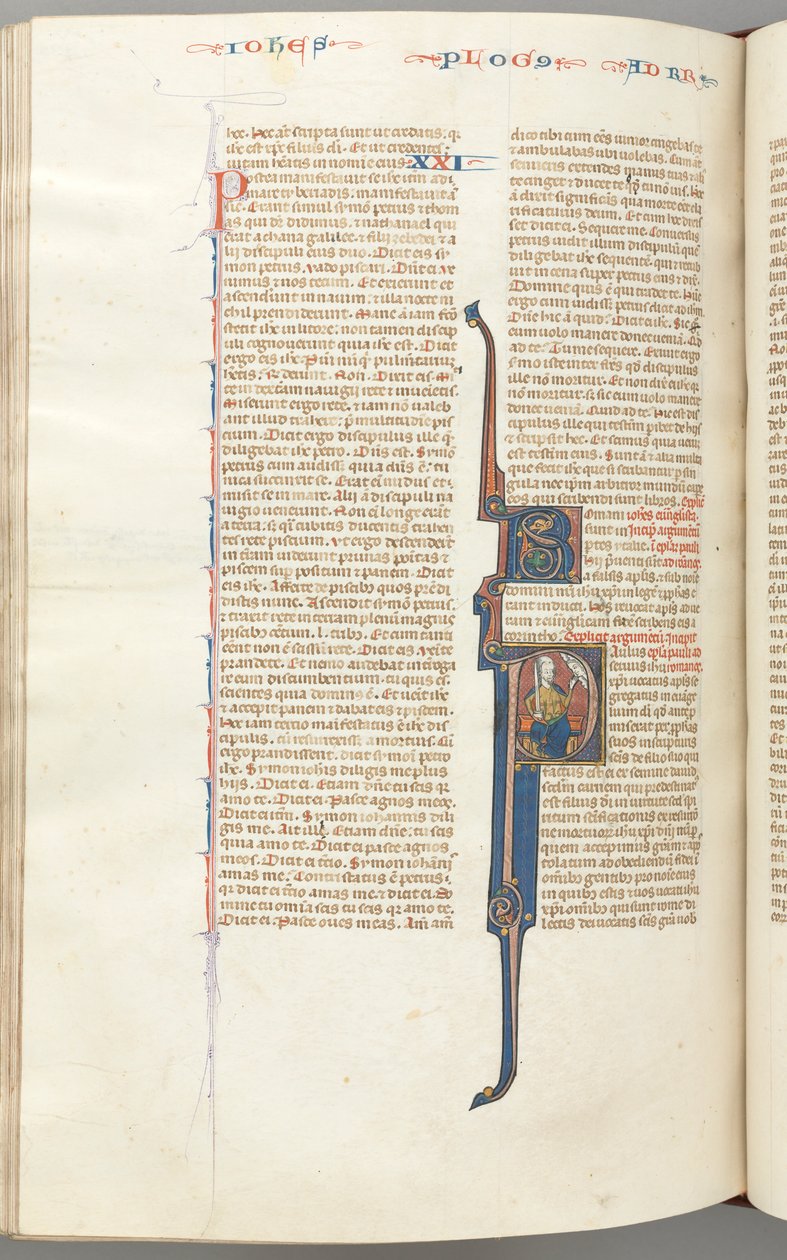 IOHES PLOG9 AD RR
hec. Hec at scripta sunt ut credatis. q.
ihc est xpc filius di. Et ut credentes
uitam heatis in nomie eius. XXI
Postea manifestauit se ihc itm ad
mare tyberiadis. manifestauit a
sic. Erant simul symo petrus et thom
as qui dr didimus. et nathanael qui
erat a chana galilee. et filii zebedei et a
lii discipuli eius duo. Dicit eis sy
mon petrus. uado piscari. Dnt ei. ve
nimus et nos tecum. Et exierunt et
ascendunt in nauim. et illa nocte ni
chil prendiderunt. Mane a iam fco
stetit ihc in litore. non tamen discip
uli cognouerunt quia ihc est. Dicit
ergo eis ihc. Pueri
hetis. Rnderunt. Non. Dixit eis. Mi
te in dexteram nauigii rete et inuenietis.
Miserunt ergo rete. et iam no ualeb
ant illud trahere. p multitudie pis
cium. Dicit ergo discipulus ille que
diligebat ihc petro. Dns est. Symo
petrus cum audiss quia dns e. tu
nica succinxit se. Erat ei nudus et
misit se in mare. Alii a discipuli na
uigio uenerunt. Non ei longe erant
a terra. s qi cubitis ducentis trahen
tes rete piscium. Vt ergo descenderunt
in tram uiderunt prunas poitas et
piscem sup positum et panem. Dicit
eis ihc. Afferte de piscibus quos prendi
distis nunc. Ascendit symo petrus.
et traxit rete in terram plenu magnis
piscibus centum. l. tribus. Et cum tanti
eent non e scissu rete. Dicit eis. venite
prandete. Et nemo audebat introga
re eum discumbentium. tu quis es.
scientes quia dominus e. Et uenit ihc
et accepit panem et dabat eis et piscem.
Hoc iam tercio manifestatus e ihc dis
cipulis. cu resurrexiss a mortuis. Cu
ergo prandissent. dicit symoi petro
ihc. Symon iohis diligis me plus
hiis. Dicit ei. Etiam dne. tu scis qr
amo te. Dicit ei. Pasce agnos meos.
Dicit ei itm. Symon iohannis dili
gis me. Ait illi. Etiam dne. tu scis
quia amo te. Dicit ei pasce agnos
meos. Dicit ei tcio. Symon iohanni
amas me. Contristatus e petrus.
qr dicit ei tcio amas me. et dicit ei. Do
mine tu omia scis tu scis qr amo te.
Dicit ei. Pasce oues meas. Am am
dico tibi cum ees iunior cingebas te
et ambulabas ubi uolebas. Cum at
senueris extendes manus tuas et ali
te cinget et ducet te quo tu no uis. Hoc
a dixit significas qua morte eet cla
rificaturus deum. Et cum hoc dixis
set dicit ei. Sequere me. Conuersus
petrus uidit illum discipulu que
diligebat ihc sequente. qui et recub
uit in cena super pectus eius et dix.
Domine quis e qui tradet te. Hunc
ergo cum uidiss petrus dicit ad ihm.
Dne hic a quid. Dicit ei ihc. Sic
eum uolo manere donec ueniam. Qd
ad te. Tu me sequere. Exiuit ergo
smo iste inter frs qd discipulus
ille no moritur. Et non dix ei ihc qr
no moritur. s sic eum uolo manere
donec ueniam. Quid ad te. Hic est dis
cipulus ille qui testim pibet de hiis
et scripsit hec. Et scimus quia ueru
est testim eius. Sunt a et alia multa
que fecit ihc que si scribantur p sin
gula nec ipm arbitror mundu cape
eos qui scribendi sunt libros. Explic
Romani iohes euuglista.
sunt in Incip argumetu
ptes ytalie. i epla pauli
hii pueti sunt ad romanos.
a falsis aplis. et sub noie
domini nri ihu xpi in lege et pphas e
rant inducti. Hos reuocat apls ad ue
ram et euuglicam fide scribens eis a
corintho. Explicit argumetu. Incipit
Paulus epla pauli ad
seruus ihu romanos.
xpi uocatus apls se
gregatus in euuage
lium di qd antep
miserat per pphas
suos in scripturis
scis de filio suo qui
factus est ei ex semine dauid
scdm carnem qui predestinat
est filius di in uirtute scd spi
ritum scificationis ex resurro
ne mortuor ihu xpi dni nri. p
quem accepimus gram et apo
tolatum ad obediendu fidei i
omibus gentibus pro noie eius
in quibus estis et uos uocati ihu
xpi omibus qui sunt rome di
lectis dei uocatis scis gra uob